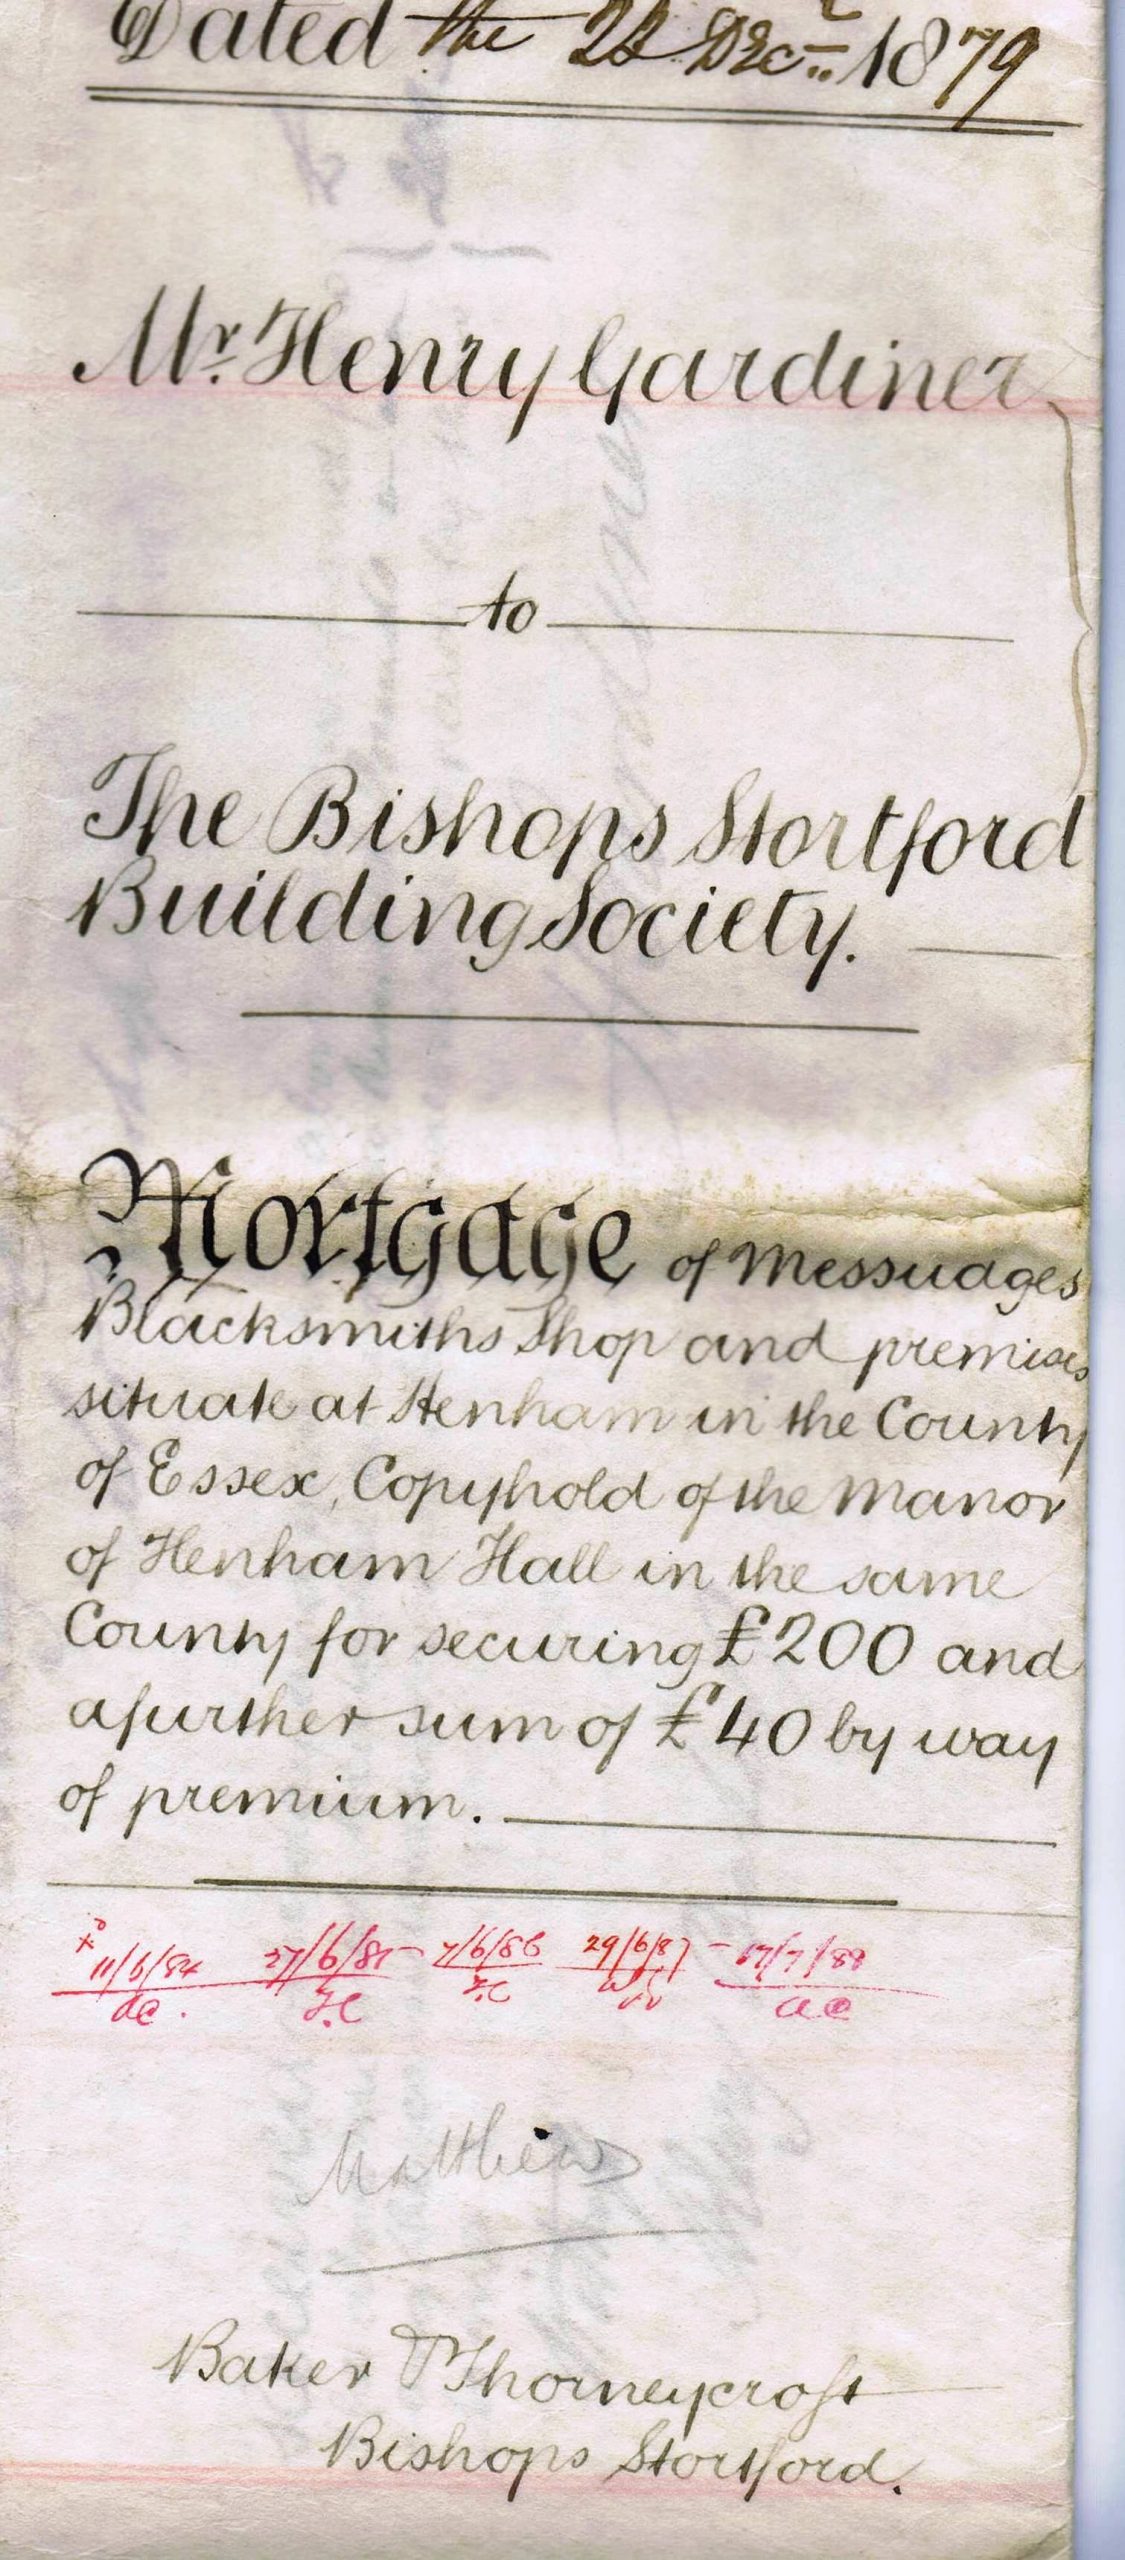 Dated the 22 Decr. 1879
Mr. Henry Gardiner
to
The Bishops Stortford
Building Society.
Mortgage of Messuages
Blacksmiths Shop and premises
situate at Henham in the County
of Essex, Copyhold of the Manor
of Henham Hall in the same
County for securing £200 and
a further sum of £40 by way
of premium.
11/6/84 27/6/85 7/6/86 29/6/87 17/7/88
J.C J.C
Matthews
Baker & Thorneycroft
Bishops Stortford.